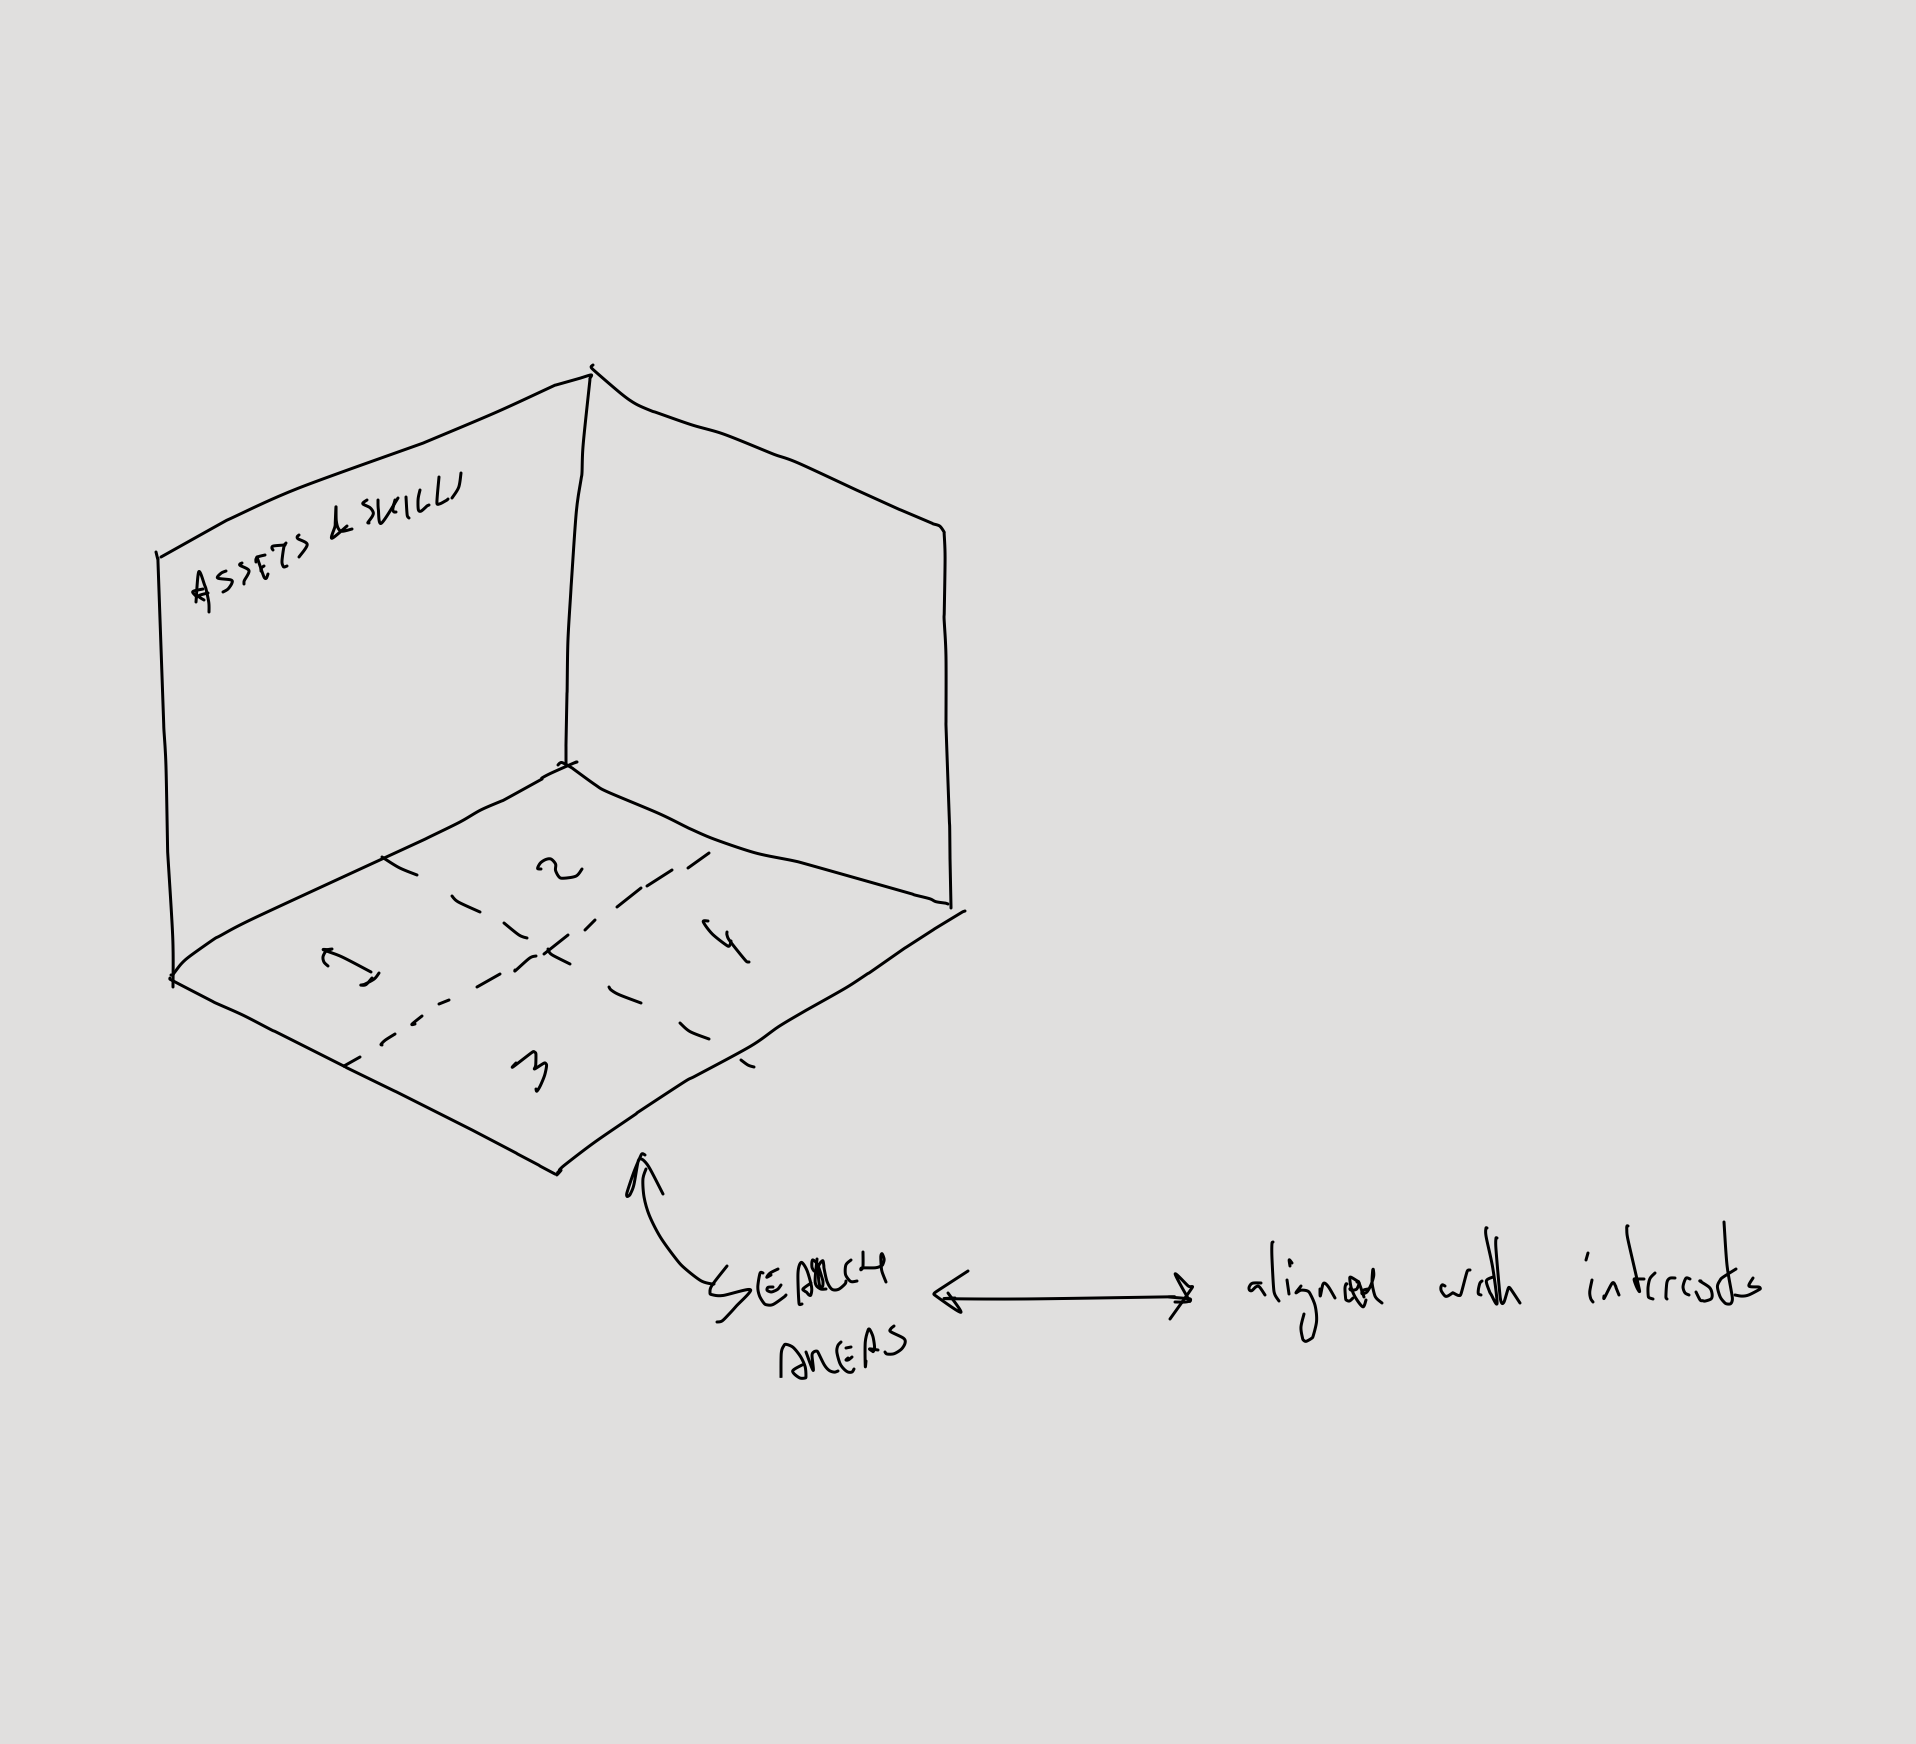 ASSETS & SKILLS
2
1
4
3
SEARCH
AREAS
aligned with interests